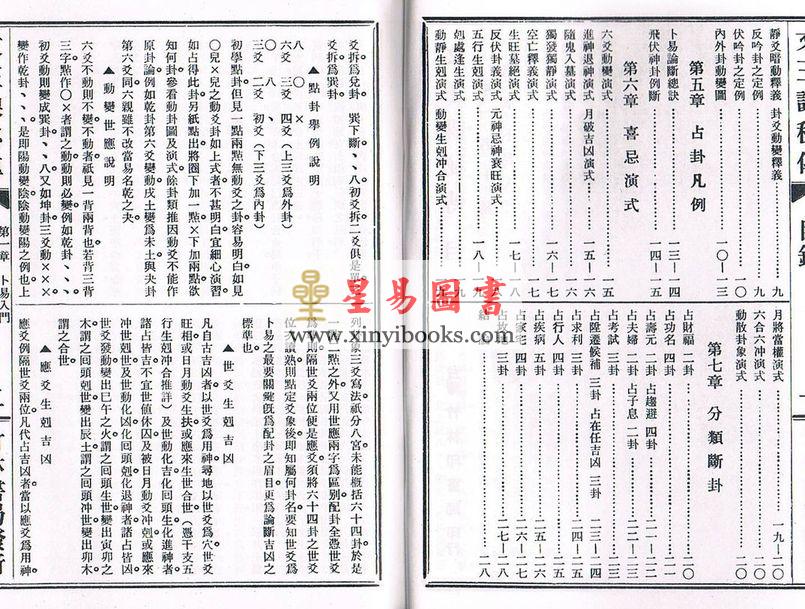 靜爻暗動釋義 卦爻動變釋義 九
反吟卦之定例 一〇
伏吟卦之定例
內外卦動變圖 一〇—一三
第五章 占卦凡例
卜易論斷總訣 一三—一四
飛伏神卦例斷 一四—一五
第六章 喜忌演式
六爻動變演式 一五
進神退神演式 月破吉凶演式 一五—一六
隨鬼入墓演式 一六
獨發獨靜演式 一六—一七
空亡釋義演式 一七
生旺墓絕演式 一七—一八
反伏卦義演式 元神忌神衰旺演式 一八
五行生剋演式 一八—一九
剋處逢生演式
動靜生剋演式 動變生剋冲合演式 一九
月將當權演式 一九—二〇
六合六冲演式 二〇
動散卦象演式 二〇
第七章 分類斷卦
占財福 二卦 二〇
占功名 四卦
占壽元 二卦 占趨避 四卦 二一
占夫婦 二卦 占子息 二卦 二一—二二
占考試 三卦
占陞遷候補 三卦 占在任吉凶 三卦 二三—二四
占求利 三卦 二四—二五
占行人 三卦 二五
占疾病 五卦 二五—二六
占家宅 四卦 二六—二七
三卦 二七—二八
結 二八
爻拆爲巽卦
爻拆爲兌卦 巽下斷、、八初爻拆二爻俱是單
▲點卦舉例說明
八 〇 ×
六爻 五爻 四爻(上三爻爲外卦)
八 、 〇
三爻 二爻 初爻(下三爻爲內卦)
初學點卦但見一點兩點無動爻之卦容易明白如見
〇兒×兒之動爻卦如上式者不甚明白宜細心演習
如占得此卦另紙點出將圈下加一點×下加兩點欲
知何卦參看動卦圖及演式餘卦類推因動爻不能作
原卦論例如乾卦第六爻變動戌土變爲未土與夬卦
第六爻同六親雖不改當易名乾之夬
▲動變世應說明
六爻不動則不變不動者祇見一背兩背也若背三背
三字點作〇×者謂之動動則必變例如乾卦、、、
初爻動則變成巽卦、、八又如坤卦三爻動×××
變作乾卦、、、是即陽動變陰陰動變陽之例也上
列 象三爻寫法祇分八宮未能概括六十四卦於是
一二點之外又用世應兩字爲區別配卦全憑世爻
爲 則隔世爻兩位便是應爻須將六十四卦之世爻
位 讀熟則點定爻象後即知屬何卦名要知世爻爲
卜易之最要關鍵旣爲配卦之眉目更爲論斷吉凶之
標準也
▲世爻生剋吉凶
凡自占吉凶者以世爻爲用神尋地以世爻爲穴世爻
旺相或日月動爻生扶或應來生世合世(憑干支五
行生剋冲合推詳)及世動化吉化回頭生化進神者
諸占皆吉不宜世値休囚及被日月動爻冲剋或應來
冲世剋世及世動化凶化回頭剋化退神者諸占皆凶
世爻發動變出巳午之火謂之回頭生世變出寅卯之
木謂之回頭剋世變出辰土謂之回頭冲世變出卯木
謂之合世
▲應爻生剋吉凶
應爻例隔世爻兩位凡代占吉凶者當以應爻爲用神
第一章 卜易入門
星易圖書
www.xinyibooks.com